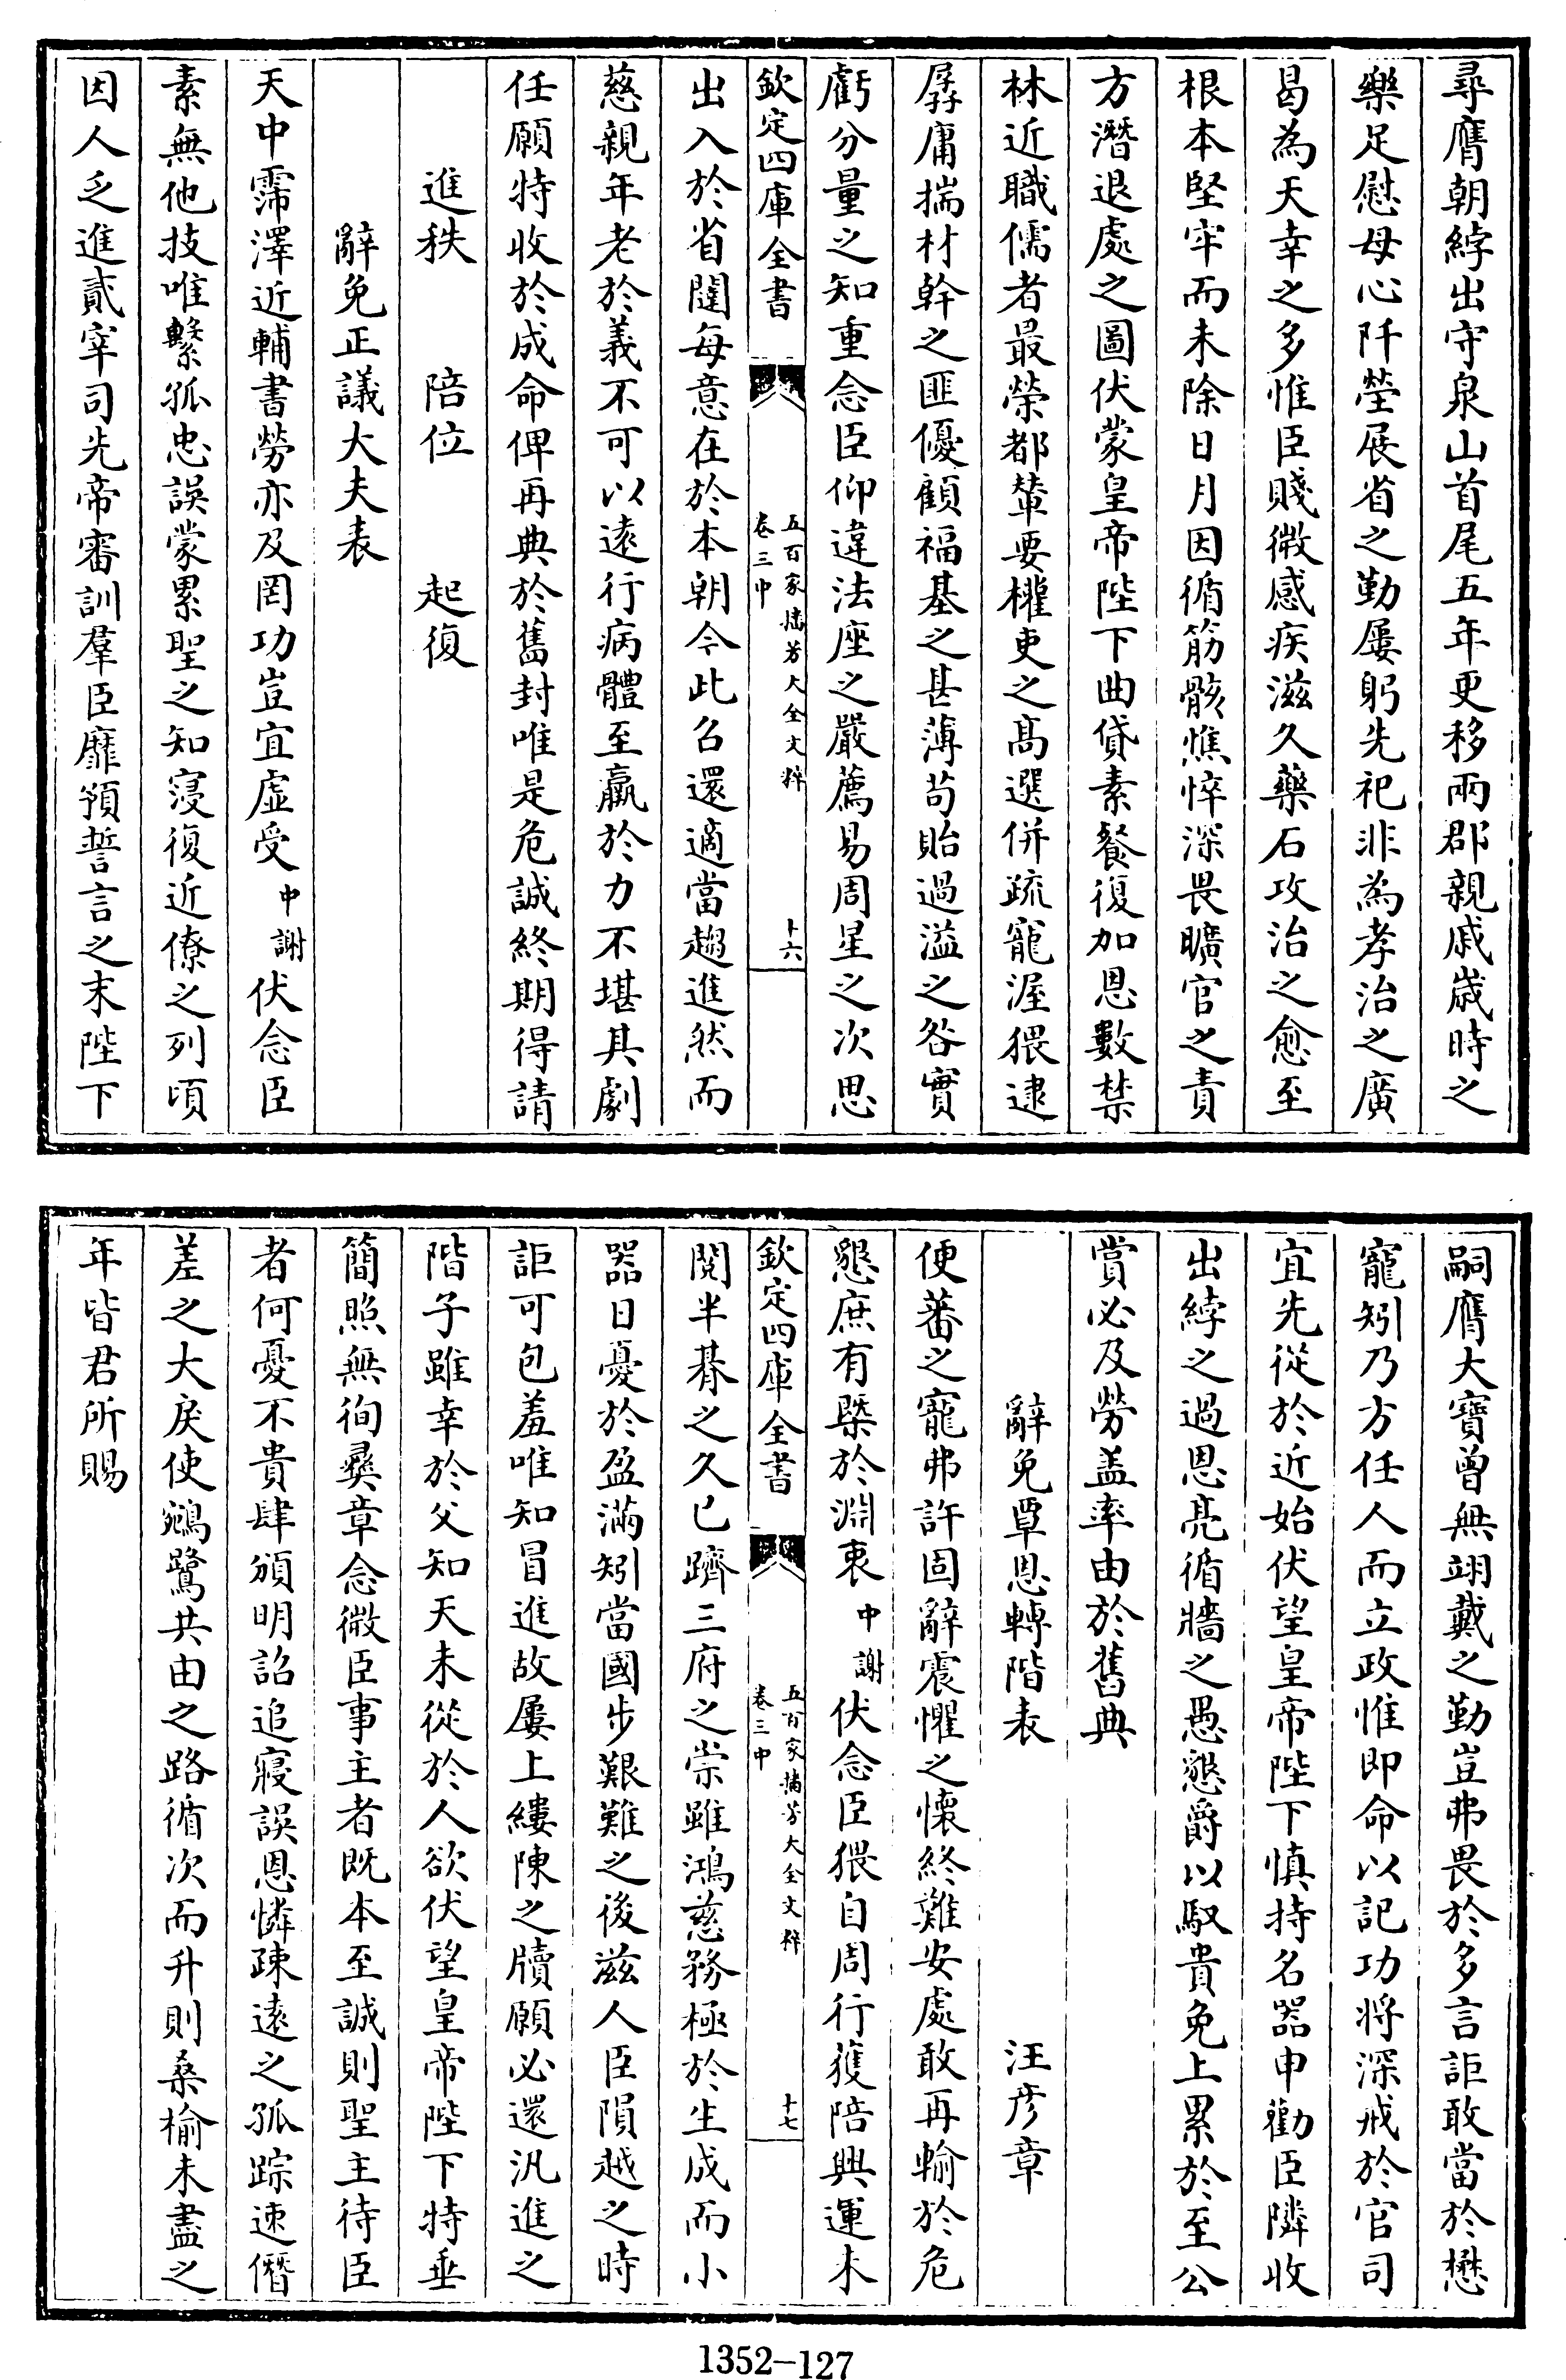 尋膺朝綍出守泉山首尾五年更移兩郡親戚歲時之
樂足慰母心阡塋展省之勤屢躬先祀非為孝治之廣
曷為天幸之多惟臣賤微感疾滋久藥石攻治之愈至
根本堅牢而未除日月因循筋骸憔悴深畏曠官之責
方潛退處之圖伏蒙皇帝陛下曲貸素餐復加恩數禁
林近職儒者最榮都輦要權吏之高選併疏寵渥猥逮
孱庸揣材幹之匪優顧福基之甚薄茍貽過溢之咎實
虧分量之知重念臣仰違法座之嚴薦易周星之次思
欽定四庫全書
五百家播芳大全文粹
卷三中
十六
出入於省闥每意在於本朝今此召還適當趨進然而
慈親年老於義不可以遠行病體至羸於力不堪其劇
任願特收於成命俾再典於舊封唯是危誠終期得請
進秩 陪位 起復
辭免正議大夫表
天中霈澤近輔書勞亦及罔功豈宜虛受中謝伏念臣
素無他技唯繫孤忠誤蒙累聖之知寖復近僚之列頃
因人乏進貳宰司先帝審訓羣臣靡預誓言之末陛下
嗣膺大寶曾無翊戴之勤豈弗畏於多言詎敢當於懋
寵矧乃方任人而立政惟即命以記功將深戒於官司
宜先從於近始伏望皇帝陛下慎持名器申勸臣隣收
出綍之過恩亮循牆之愚懇爵以馭貴免上累於至公
賞必及勞盖率由於舊典
辭免覃恩轉階表 汪彦章
便蕃之寵弗許固辭震懼之懷終難安處敢再輸於危
懇庶有槩於淵衷中謝伏念臣猥自周行獲陪興運未
欽定四庫全書
五百家播芳大全文粹
卷三中
十七
閱半朞之久已躋三府之崇雖鴻慈務極於生成而小
器日憂於盈滿矧當國步艱難之後滋人臣隕越之時
詎可包羞唯知冒進故屢上縷陳之牘願必還汎進之
階子雖幸於父知天未從於人欲伏望皇帝陛下特垂
簡照無徇彜章念微臣事主者既本至誠則聖主待臣
者何憂不貴肆頒明詔追寢誤恩憐疎遠之孤踪速僭
差之大戾使鵷鷺共由之路循次而升則桑榆未盡之
年皆君所賜
1352-127